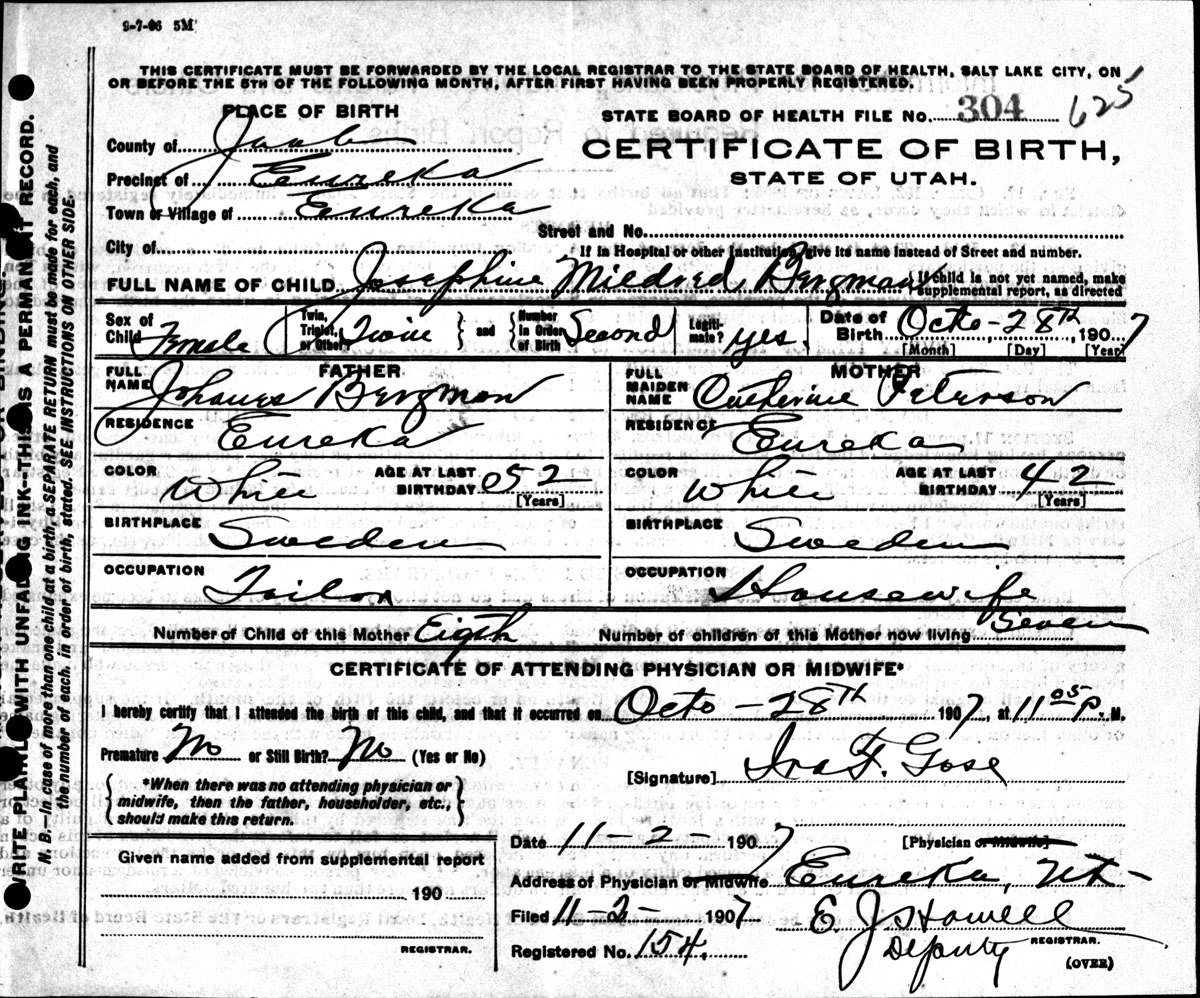 9-7-06 5M
THIS CERTIFICATE MUST BE FORWARDED BY THE LOCAL REGISTRAR TO THE STATE BOARD OF HEALTH, SALT LAKE CITY, ON
OR BEFORE THE 5TH OF THE FOLLOWING MONTH, AFTER FIRST HAVING BEEN PROPERLY REGISTERED.
PLACE OF BIRTH
STATE BOARD OF HEALTH FILE No. 304 625
County of Juab
CERTIFICATE OF BIRTH,
Precinct of Eureka
STATE OF UTAH.
Town or Village of Eureka
Street and No.
City of
If in Hospital or other Institution, give its name instead of Street and number.
FULL NAME OF CHILD Josephine Mildred Bergman { If child is not yet named, make supplemental report, as directed
Sex of Child Female { Twin, Triplet, or Other? Twin } and { Number in Order of Birth Second Legiti-mate? yes. Date of Birth Octo-28th, 1907
[Month] [Day] [Year]
FATHER
FULL NAME Johanes Bergman
RESIDENCE Eureka
COLOR White AGE AT LAST BIRTHDAY 52 [Years]
BIRTHPLACE Sweden
OCCUPATION Tailor
MOTHER
FULL MAIDEN NAME Catherine Peterson
RESIDENCE Eureka
COLOR White AGE AT LAST BIRTHDAY 42 [Years]
BIRTHPLACE Sweden
OCCUPATION Housewife
Number of Child of this Mother Eigth Number of children of this Mother now living Seven
CERTIFICATE OF ATTENDING PHYSICIAN OR MIDWIFE*
I hereby certify that I attended the birth of this child, and that it occurred on Octo-28th 1907, at 11 05 P. M.
Premature No or Still Birth? No (Yes or No)
[Signature] Ira F. Gose
*When there was no attending physician or
midwife, then the father, householder, etc.,
should make this return.
Date 11-2- 1907 [Physician or Midwife]
Given name added from supplemental report
190
REGISTRAR.
Address of Physician or Midwife Eureka, Ut-
Filed 11-2- 1907 E. J. Howell
Deputy REGISTRAR.
Registered No. 154.
(OVER)
WRITE PLAINLY WITH UNFADING INK—THIS IS A PERMANENT RECORD.
N. B.—In case of more than one child at a birth, a SEPARATE RETURN must be made for each, and
the number of each, in order of birth, stated. SEE INSTRUCTIONS ON OTHER SIDE.